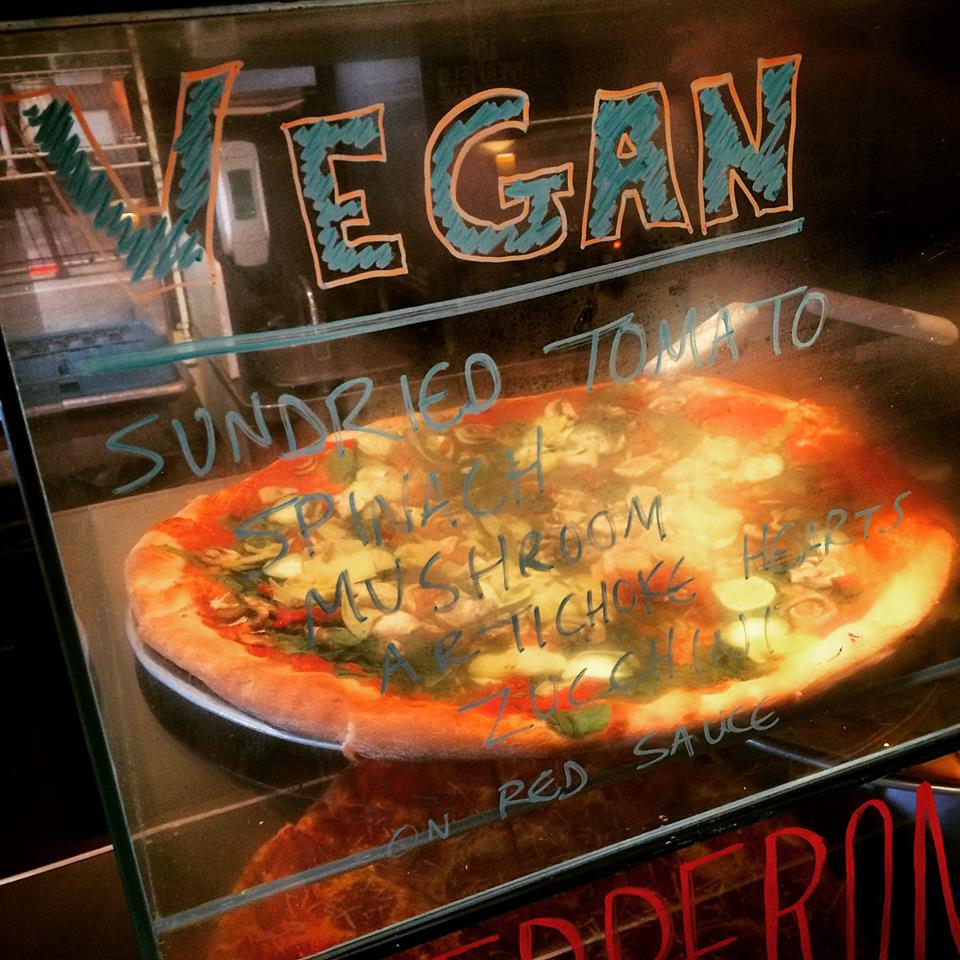 VEGAN
SUNDRIED TOMATO
SPINACH
MUSHROOM
ARTICHOKE HEARTS
ZUCCHINI
ON RED SAUCE
EPPERON